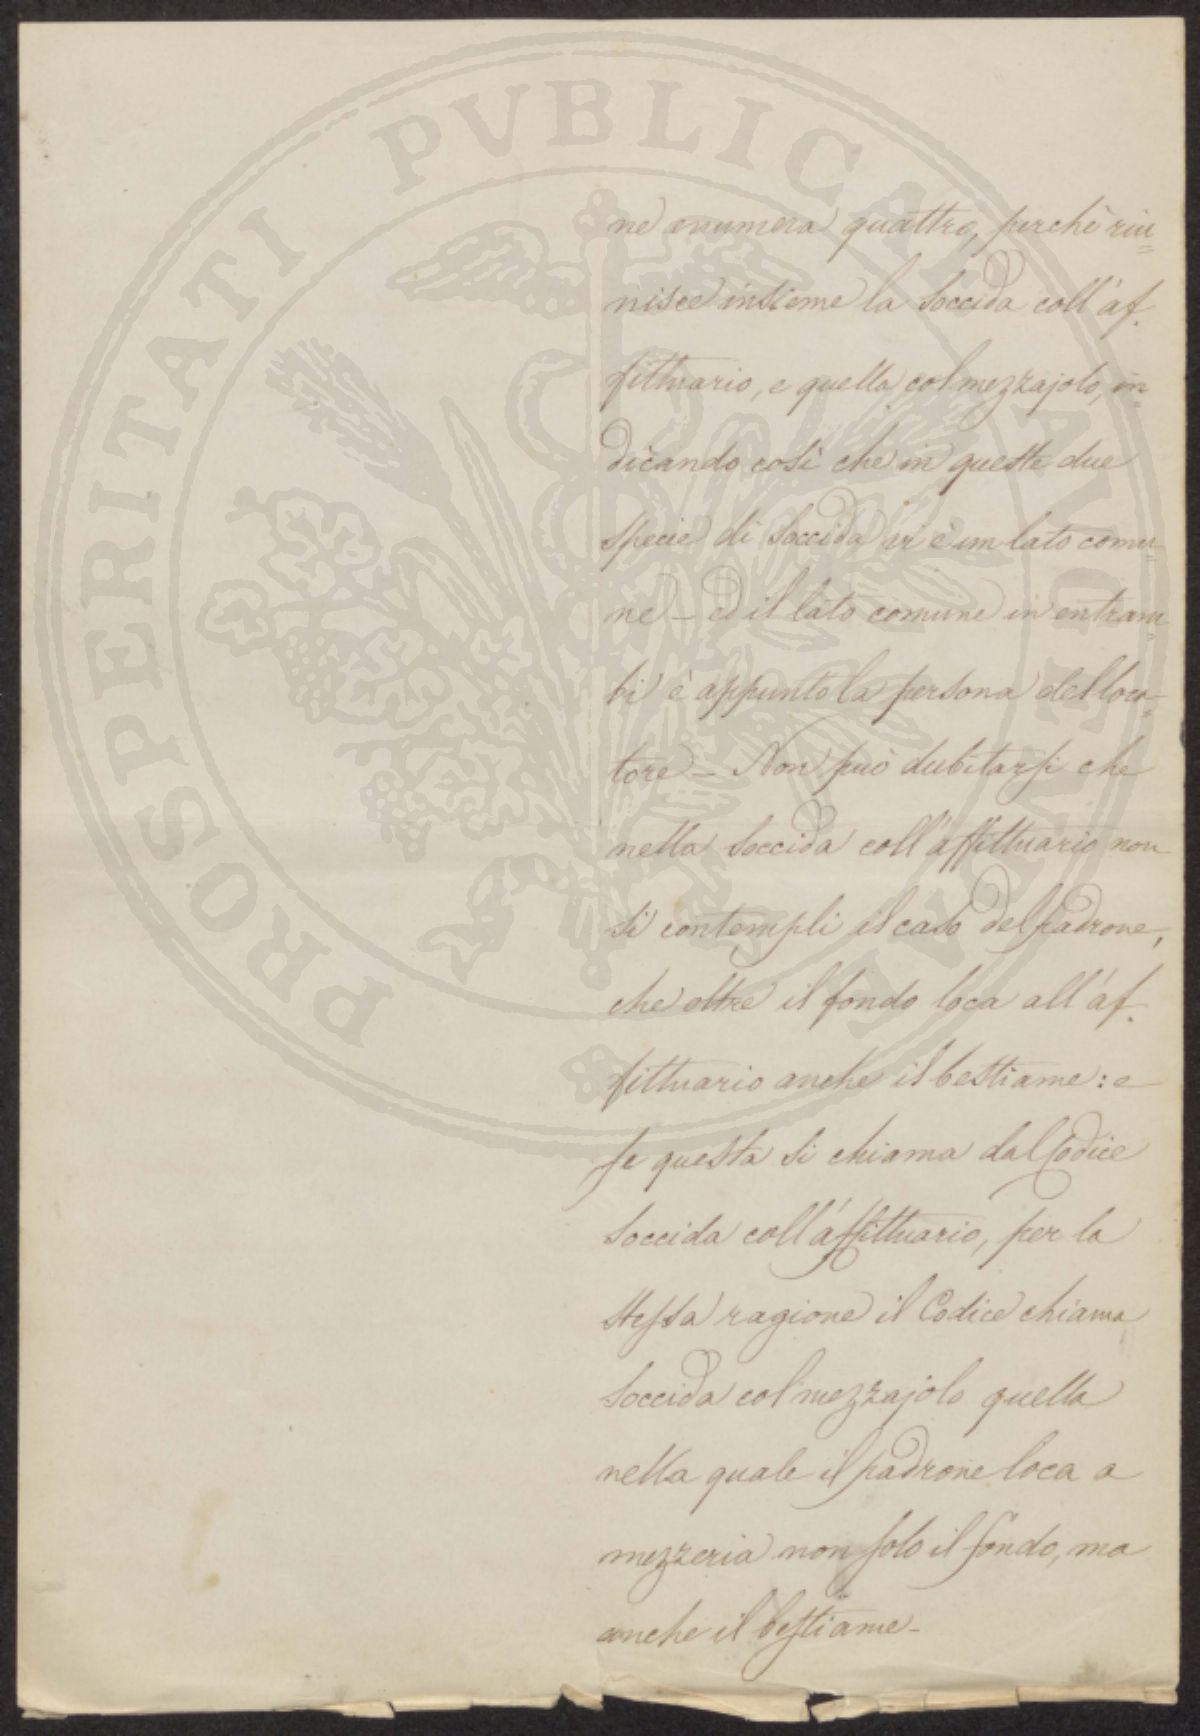 PROSPERITATI PVBLICAE AVGENDAE
ne enumera quattro, perchè riu=
nisce insieme la Soccida coll'af-
fittuario, e quella col mezzajolo, in=
dicando così che in queste due
specie di Soccida vi è un lato comu=
ne – ed il lato comune in entram=
bi è appunto la persona del loca=
tore – Non può dubitarsi che
nella Soccida coll'affittuario non
si contempli il caso del padrone,
che oltre il fondo loca all'af-
fittuario anche il bestiame: e
se questa si chiama dal Codice
Soccida coll'affittuario, per la
stessa ragione il Codice chiama
Soccida col mezzajolo quella
nella quale il padrone loca a
mezzeria non solo il fondo, ma
anche il bestiame –